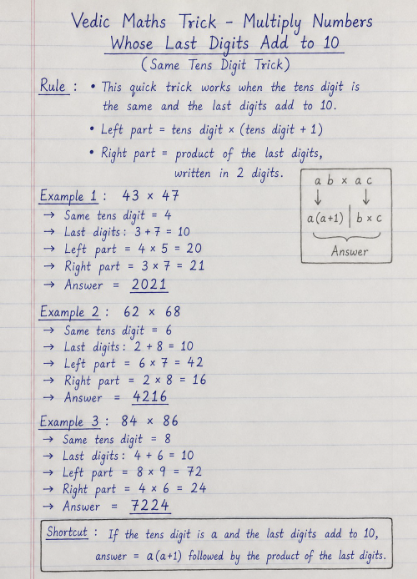 Vedic Maths Trick - Multiply Numbers
Whose Last Digits Add to 10
(Same Tens Digit Trick)
Rule : • This quick trick works when the tens digit is
the same and the last digits add to 10.
• Left part = tens digit × (tens digit + 1)
• Right part = product of the last digits,
written in 2 digits.
a b × a c
↓ ↓
a(a+1) | b × c
Answer
Example 1 : 43 × 47
→ Same tens digit = 4
→ Last digits: 3 + 7 = 10
→ Left part = 4 × 5 = 20
→ Right part = 3 × 7 = 21
→ Answer = 2021
Example 2 : 62 × 68
→ Same tens digit = 6
→ Last digits: 2 + 8 = 10
→ Left part = 6 × 7 = 42
→ Right part = 2 × 8 = 16
→ Answer = 4216
Example 3 : 84 × 86
→ Same tens digit = 8
→ Last digits: 4 + 6 = 10
→ Left part = 8 × 9 = 72
→ Right part = 4 × 6 = 24
→ Answer = 7224
Shortcut : If the tens digit is a and the last digits add to 10,
answer = a(a+1) followed by the product of the last digits.